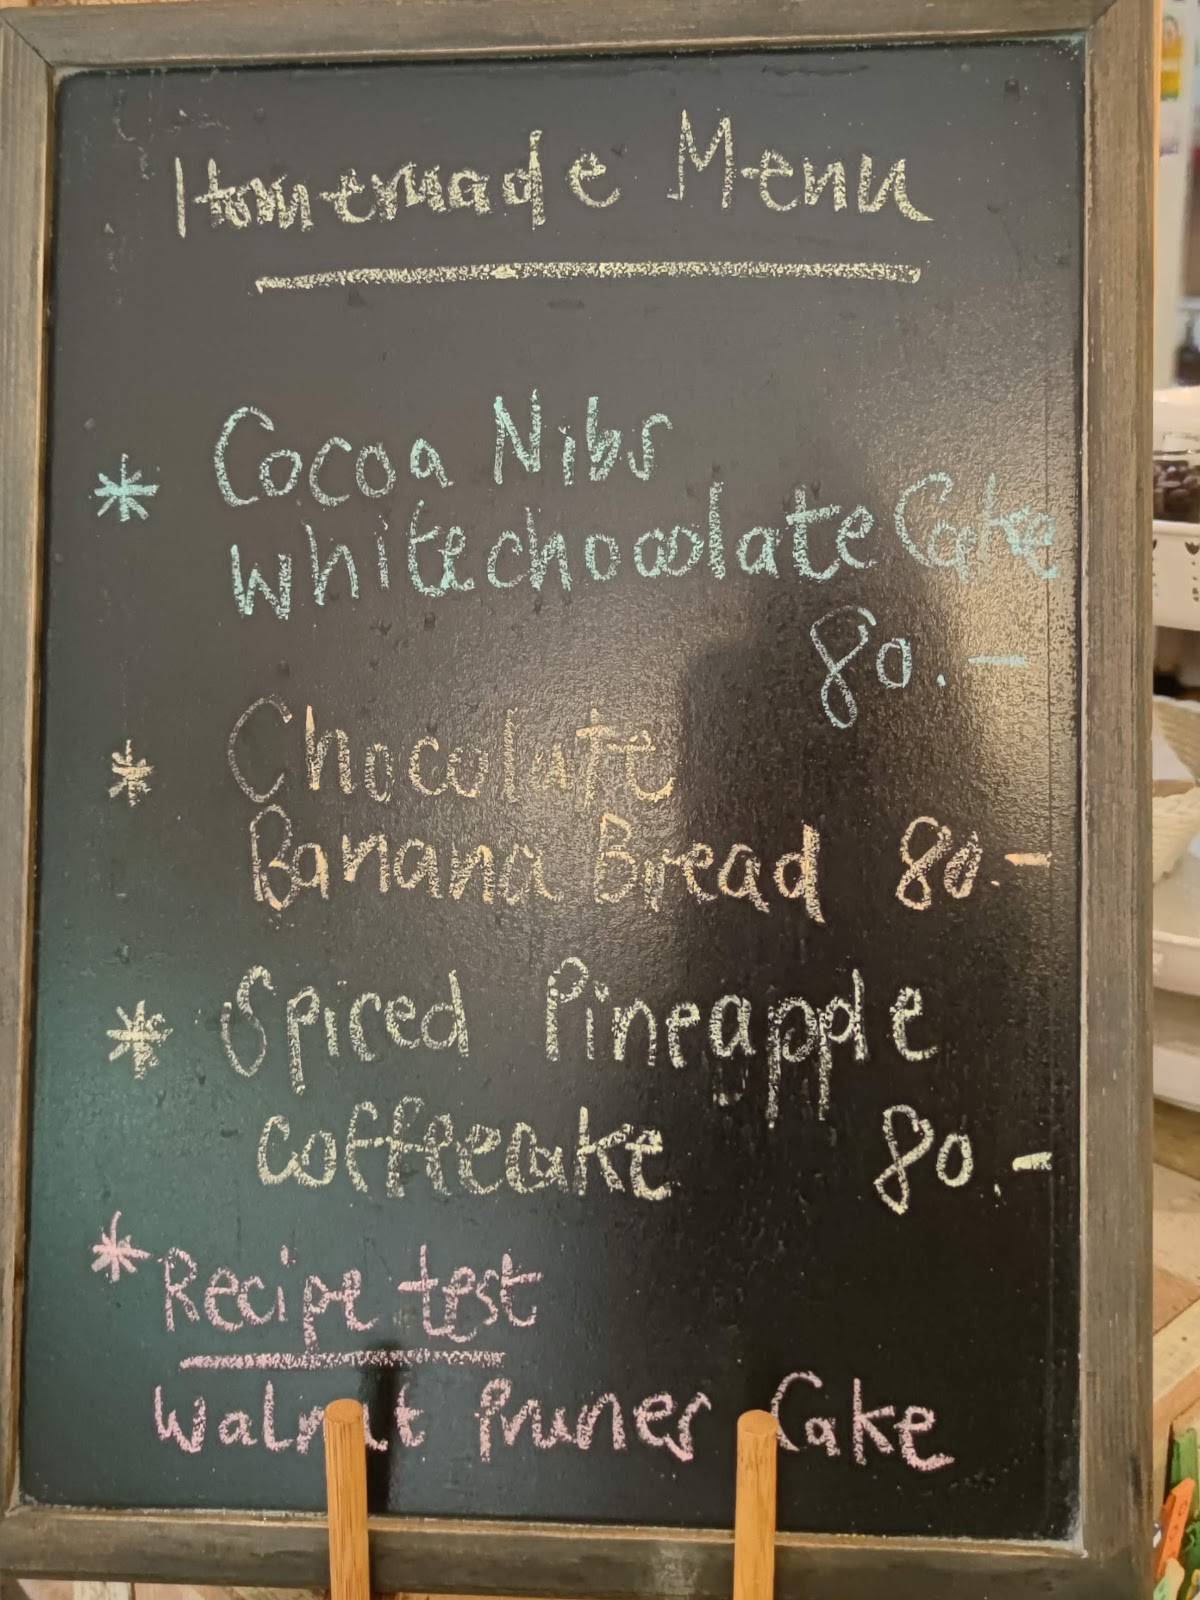 Homemade Menu
* Cocoa Nibs
whitechocolate Cake
80.-
* Chocolate
Banana Bread 80.-
* Spiced Pineapple
coffeecake 80.-
* Recipe test
Walnut Prunes Cake